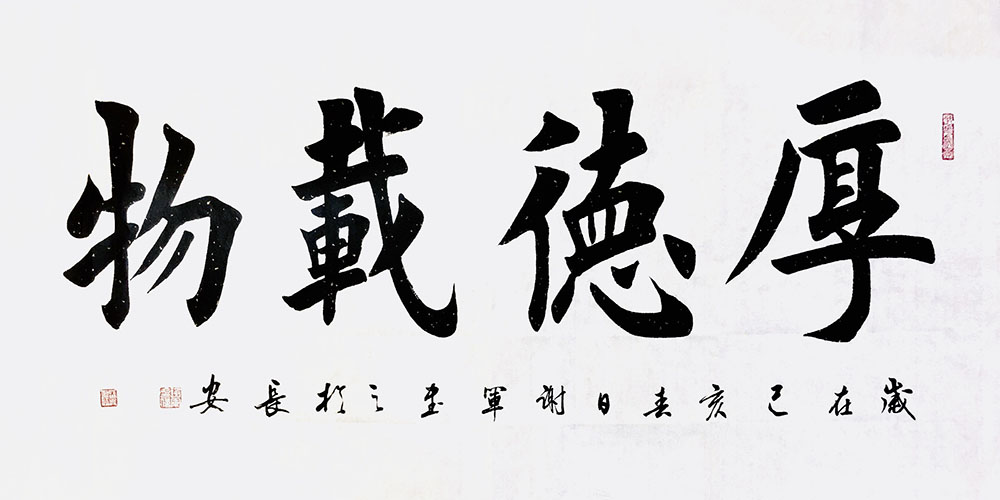 厚德載物
歲在己亥春日謝軍書之於長安